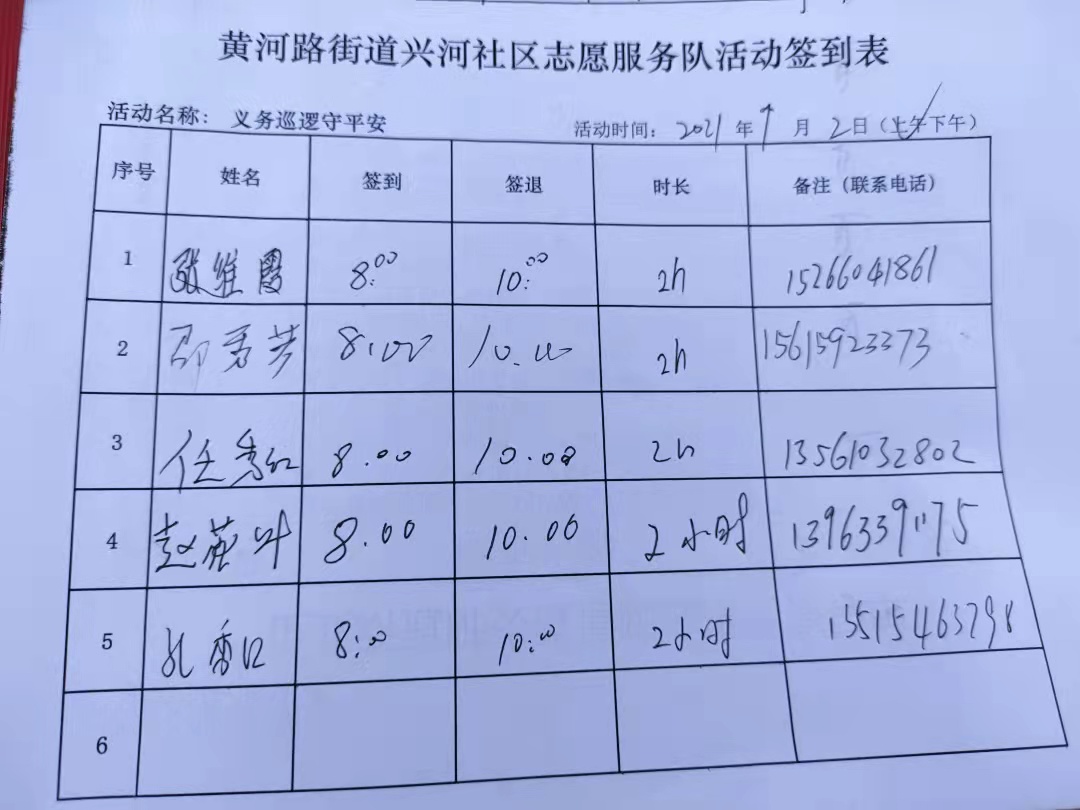 黄河路街道兴河社区志愿服务队活动签到表
活动名称： 义务巡逻守平安 活动时间： 2021 年 9 月 2 日（上午下午）
序号 姓名 签到 签退 时长 备注（联系电话）
1 张维霞 8:00 10:00 2h 15266041861
2 邵秀芳 8:00 10.00 2h 15615923373
3 任秀红 8.00 10.00 2h 13561032802
4 赵英叶 8.00 10.00 2小时 13963391175
5 孔香 8:00 10:00 2小时 15515463798
6